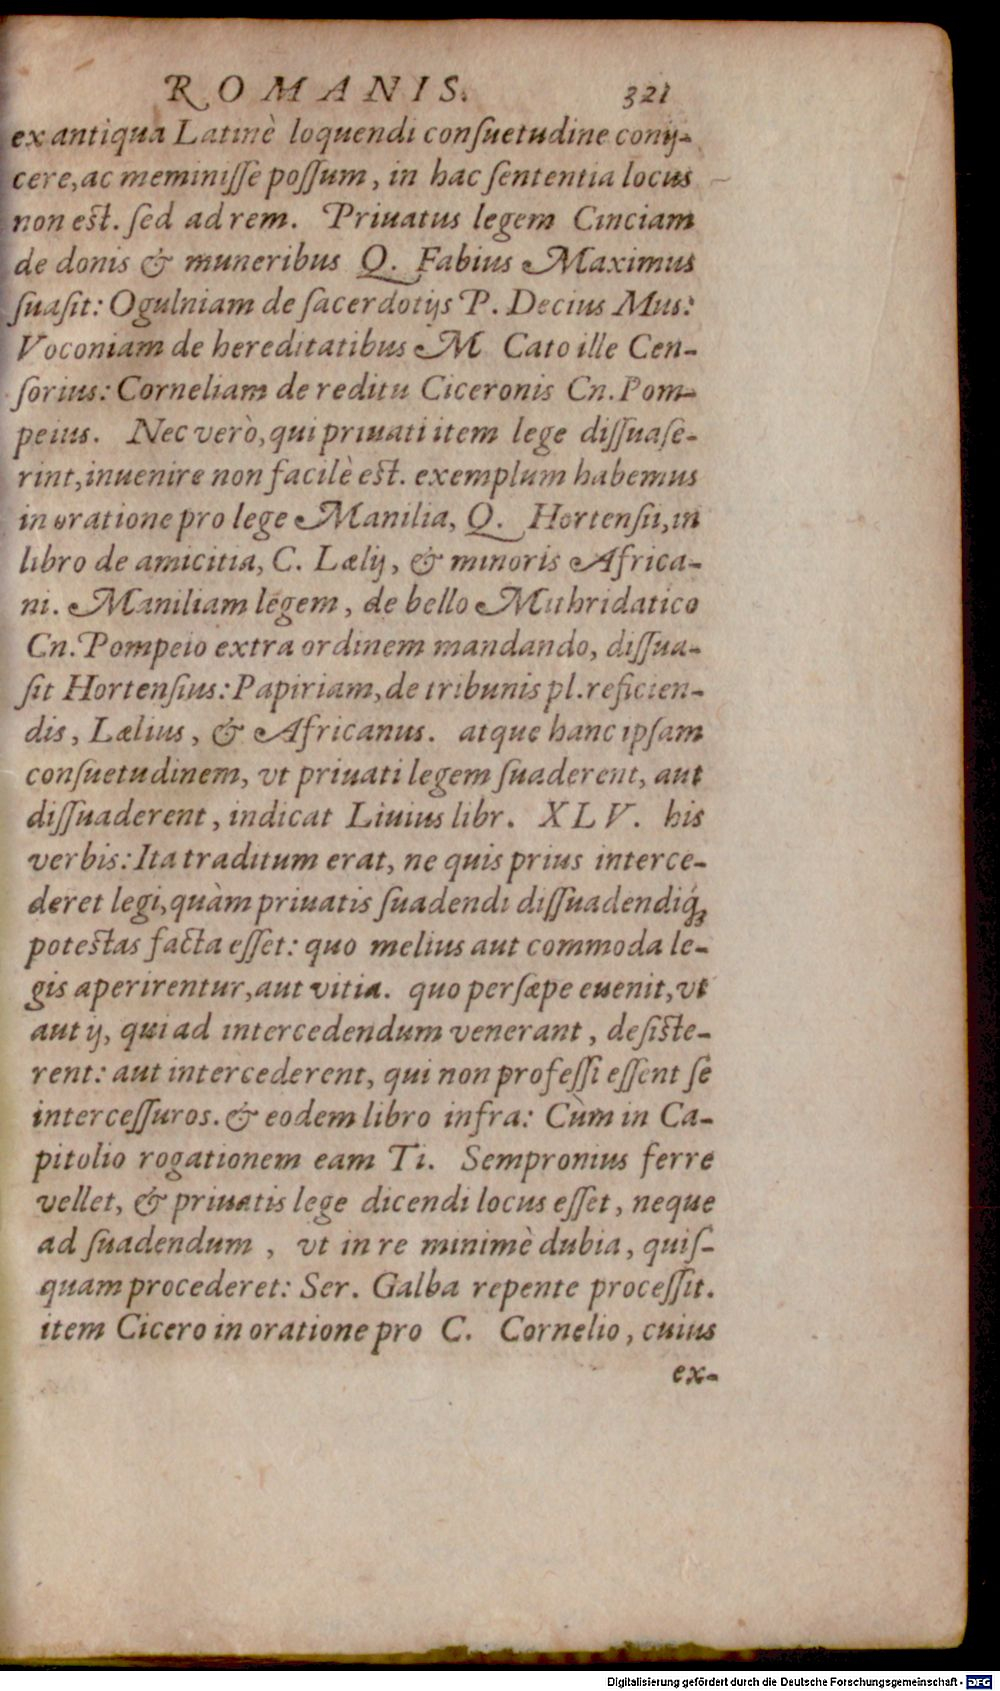 ROMANIS. 321
ex antiqua Latinè loquendi conſuetudine conij-
cere, ac meminiſſe poſſum, in hac ſententia locus
non eſt. ſed ad rem. Priuatus legem Cinciam
de donis & muneribus Q. Fabius Maximus
ſuaſit: Ogulniam de ſacerdotijs P. Decius Mus:
Voconiam de hereditatibus M Cato ille Cen-
ſorius: Corneliam de reditu Ciceronis Cn. Pom-
peius. Nec verò, qui priuati item lege diſſuaſe-
rint, inuenire non facilè eſt. exemplum habemus
in oratione pro lege Manilia, Q. Hortenſii, in
libro de amicitia, C. Lælij, & minoris Africa-
ni. Maniliam legem, de bello Mithridatico
Cn. Pompeio extra ordinem mandando, diſſua-
ſit Hortenſius: Papiriam, de tribunis pl. reficien-
dis, Lælius, & Africanus. atque hanc ipſam
conſuetudinem, vt priuati legem ſuaderent, aut
diſſuaderent, indicat Liuius libr. XLV. his
verbis: Ita traditum erat, ne quis prius interce-
deret legi, quàm priuatis ſuadendi diſſuadendiq́;
poteſtas facta eſſet: quo melius aut commoda le-
gis aperirentur, aut vitia. quo perſæpe euenit, vt
aut ij, qui ad intercedendum venerant, deſiſte-
rent: aut intercederent, qui non profeſſi eſſent ſe
interceſſuros. & eodem libro infra: Cùm in Ca-
pitolio rogationem eam Ti. Sempronius ferre
vellet, & priuatis lege dicendi locus eſſet, neque
ad ſuadendum, vt in re minimè dubia, quiſ-
quam procederet: Ser. Galba repente proceſſit.
item Cicero in oratione pro C. Cornelio, cuius
ex-
Digitalisierung gefördert durch die Deutsche Forschungsgemeinschaft - DFG